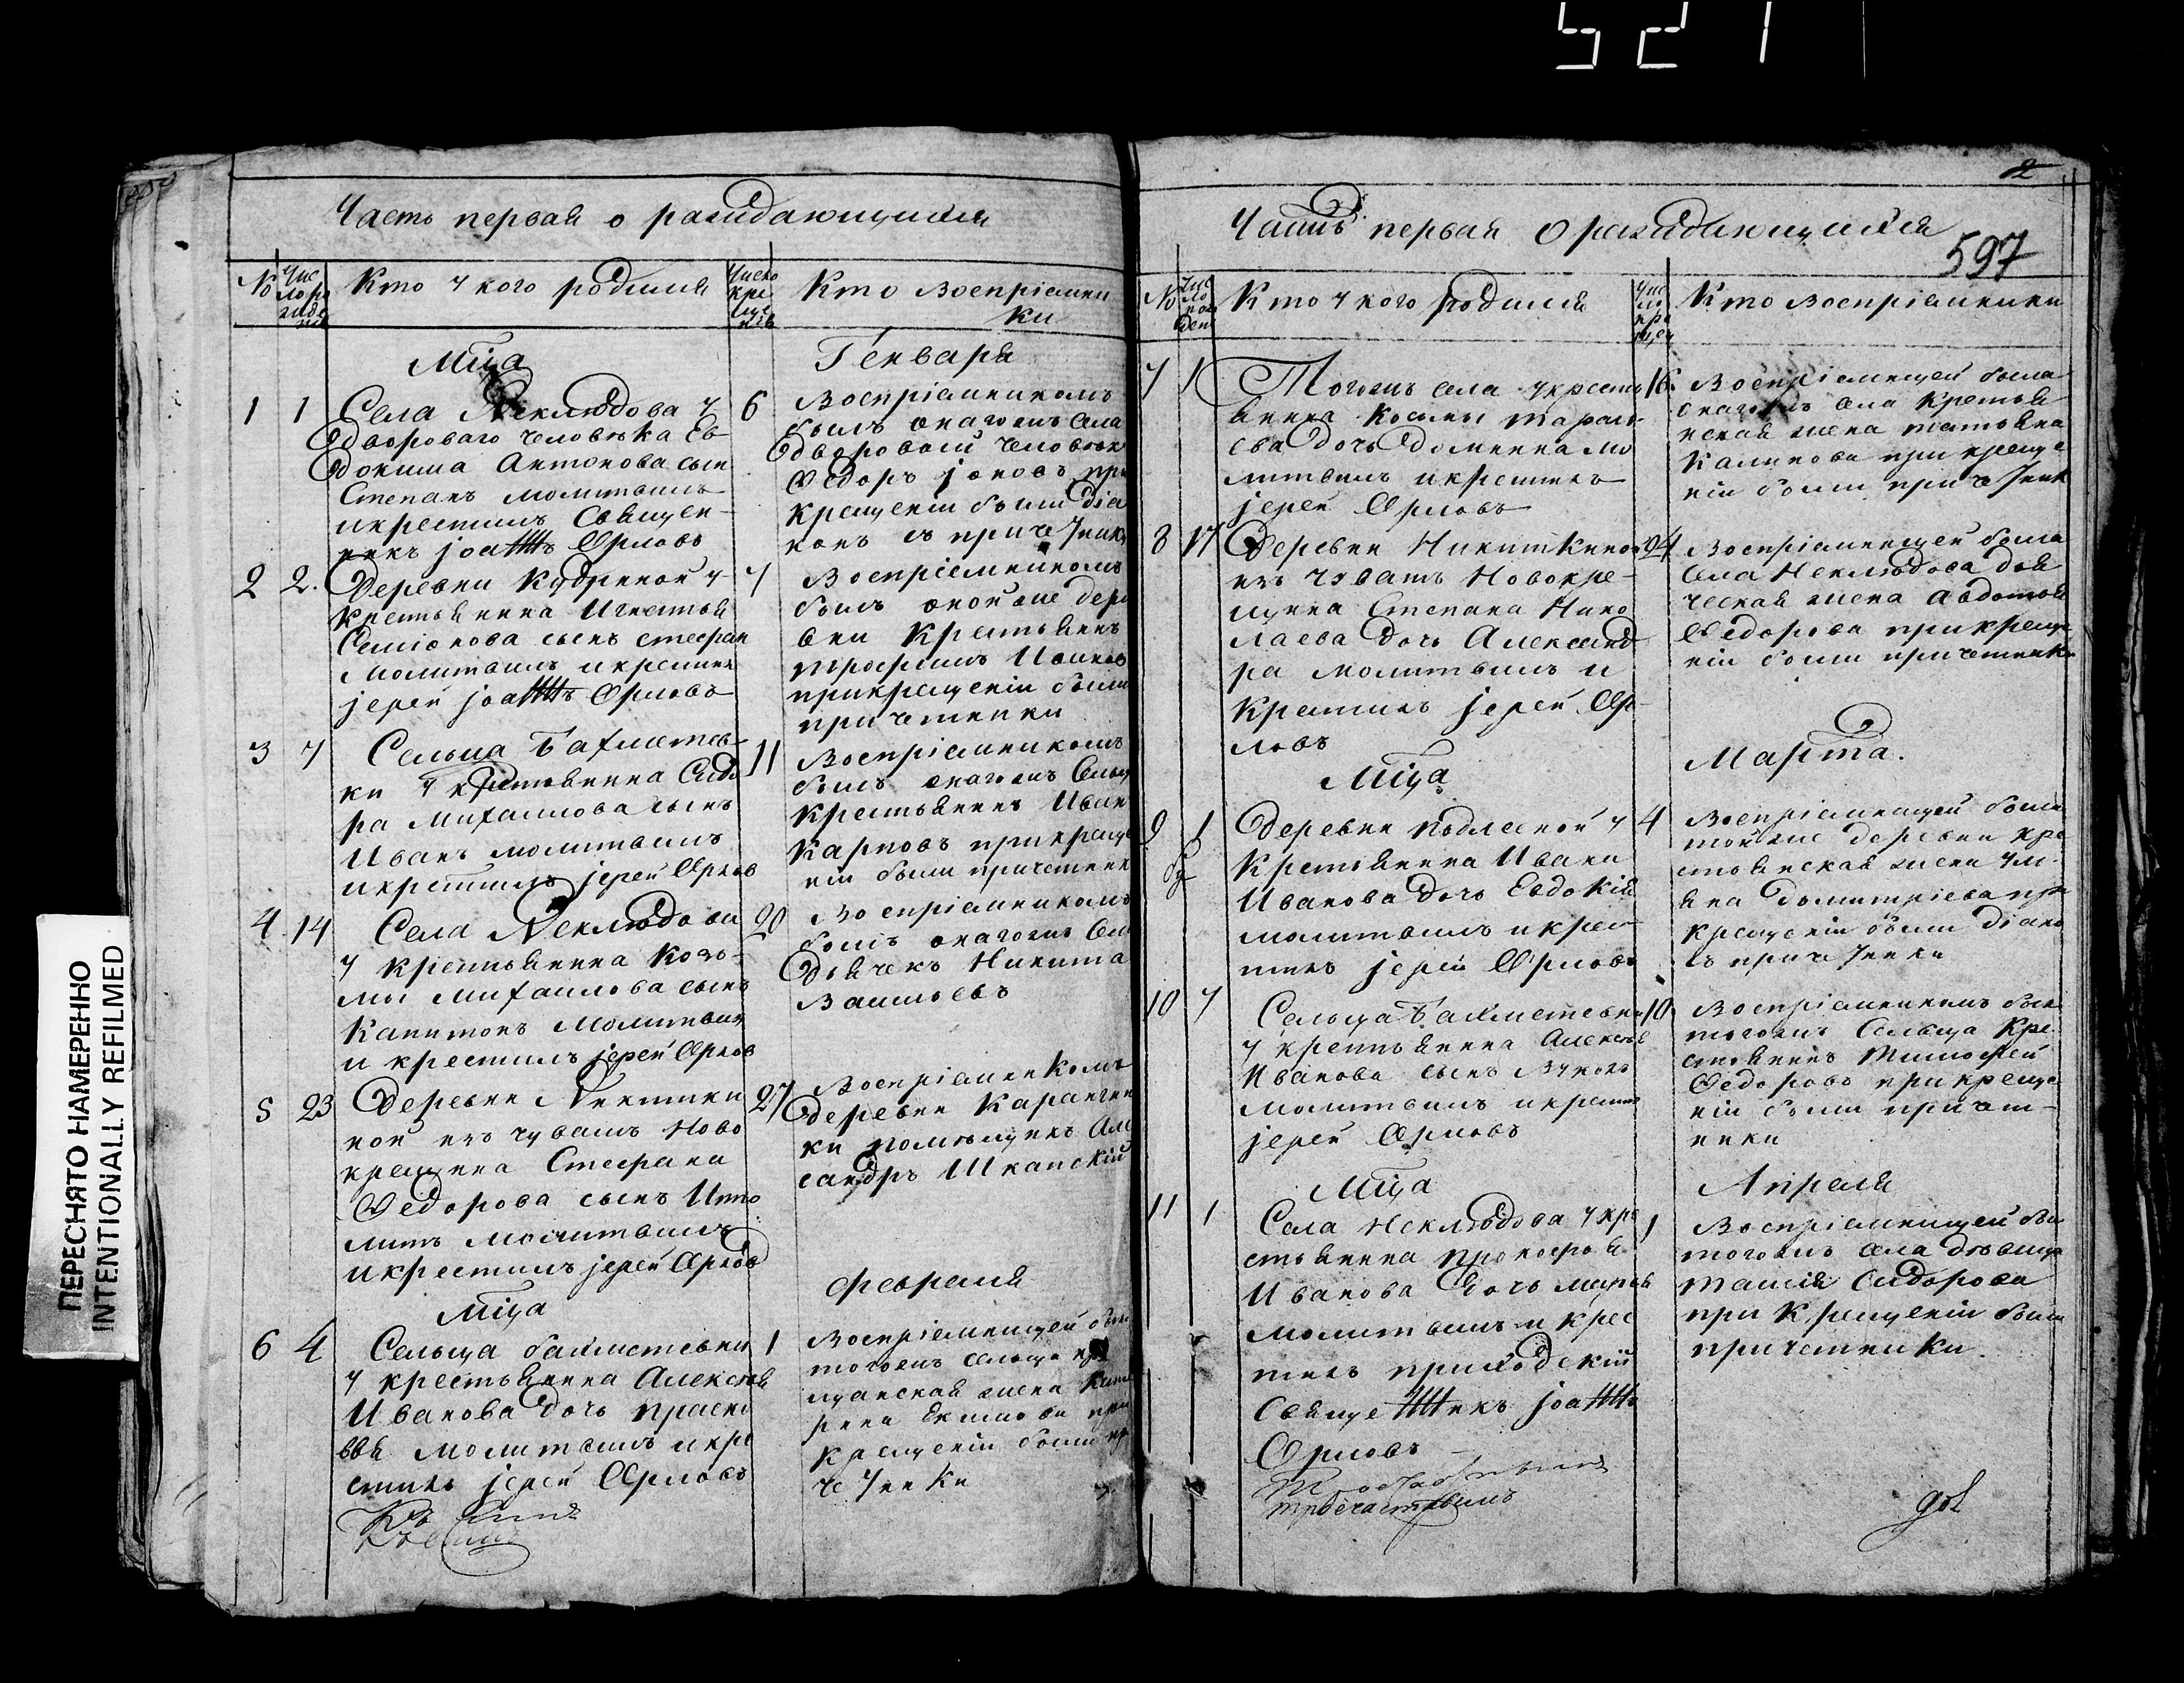 521
Часть первая о раждающихся
№
Число рожде нія
Кто у кого родился
Число кре ще нія
Кто воспріемни
ки
Мца
Генваря
1 1 Села Неклюдова у
двороваго человѣка Ев
докима Антонова сын
Степанъ молитвилъ
и крестилъ Священ
никъ Іоаннъ Орловъ
6 Воспріемникомъ
былъ онагожъ села
дворовой человѣк
Ѳедоръ при
крещеніи были діа
конъ съ причетник
2 2. Деревни Кудриной у
крестьянина Игнатья
Семіонова сынъ Стефан
молитвилъ и крестил
Іерей Іоаннъ Орловъ
7 Воспріемникомъ
былъ оной же дере
вни крестьянинъ
Трофимъ Ивановъ
при крещеніи были
причетники
3 7 Сельца Бахметев
ки у крестьянина Сидо
ра Михаилова сынъ
Иванъ молитвилъ
и крестилъ Іерей Орлов
11 Воспріемникомъ
былъ онагожъ Сельц
крестьянинъ Иван
Карповъ при креще
ніи были причетник
4 14 Села Неклюдова
у крестьянина Козь
мы Михаилова сынъ
Капитонъ молитвил
и крестилъ Іерей Орлов
20 Воспріемникомъ
былъ онагожъ Сел
дьячекъ Никита
Васильевъ
5 23 Деревни Никитки
ной изъ чувашъ Ново
крещена Стефана
Ѳедорова сынъ Иппо
литъ молитвилъ
и крестилъ Іерей Орлов
27 Воспріемникомъ
деревни
ки помѣщикъ Але
сандръ Шканскій
Мца
Февраля
6 4 Сельца Бахметевки
у крестьянина Алексѣя
Иванова дочь Праско
вья молитвилъ и кре
стилъ Іерей Орловъ
1 Воспріемницей был
тогожъ Сельца
жена
при
крещеніи были пр
четники
2
Часть первая о раждающихся
597
№
Чис ло рож ден
Кто у кого родился
Чис ло кре щен
Кто воспріемники
7 1 Тогожъ села у кресть
янина Косьмы Тарась
ева дочь Домника мо
литвилъ и крестилъ
Іерей Орловъ
16 Воспріемницей была
онагожъ села крестья
нская жена Татьяна
Калинова при креще
ніи были причетник
8 17 Деревни Никиткиной
изъ чувашъ Новокре
щена Степана Нико
лаева дочь Александ
ра молитвилъ и
крестилъ Іерей Ор
ловъ
24 Воспріемницей была
Села Неклюдова дья
ческая жена Авдотья
Ѳедорова при креще
ніи были причетники
Мца
Марта.
9 1 Деревни Подлесной у
крестьянина Ивана
Иванова дочь Евдокія
молитвилъ и крес
тилъ Іерей Орловъ
4 Воспріемницей была
той же деревни кре
стьянская жена Уль
яна Димитріева при
крещеніи были діако
съ причетники
10 7 Сельца Бахметевки
у крестьянина Алексѣя
Иванова сынъ Вуколъ
молитвилъ и крестил
Іерей Орловъ
10 Воспріемникомъ был
тогожъ Сельца кре
стьянинъ Тимофей
Ѳедоровъ при креще
ніи были причет
ники
Мца
Апреля
11 1 Села Неклюдова у кре
стьянина Прокофья
Иванова дочь Марья
молитвилъ и крес
тилъ приходскій
Священникъ Іоаннъ
Орловъ
1 Воспріемницей был
тогожъ села дѣвица
Сидорова
при крещеніи были
причетники
ПЕРЕСНЯТО НАМЕРЕННО
INTENTIONALLY REFILMED